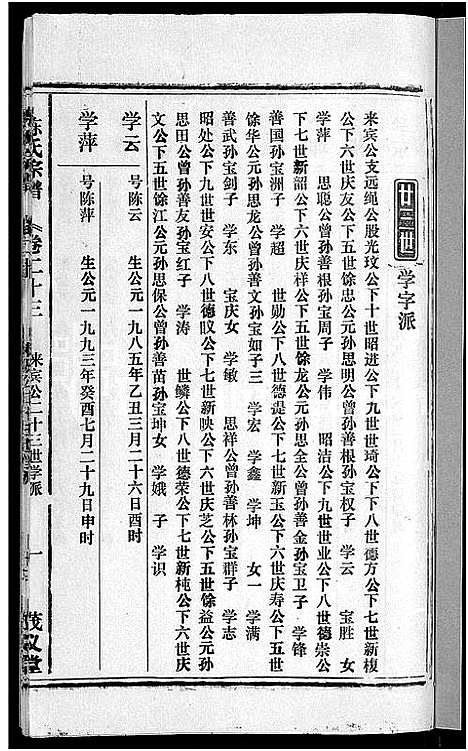 廿三世 学字派
来宾公支远绳公股光玟公下十世昭进公下九世世琦公下八世德方公下七世新椱
公下六世庆友公下五世馀忠公元孙思明公曾孙善根孙宝权子 学云 宝胜女
学萍 思聪公曾孙善根孙宝周子 学伟 昭洁公下九世世业公下八世德崇公
下七世新韶公下六世庆样公下五世馀龙公元孙思全公曾孙善金孙宝卫子 学锋
善国孙宝洲子 学超 世勋公下八世德湜公下七世新玉公下六世庆寿公下五世
馀华公元孙思龙公曾孙善文孙宝如子三 学宏 学鑫 学坤 女一 学满
善武孙宝剑子 学东 宝庆女 学敏 思祥公曾孙善林孙宝群子 学志
昭处公下九世世安公下八世德旼公下七世新映公下六世庆芝公下五世馀益公元孙
思田公曾孙善友孙宝红子 学涛 世鳞公下八世德荣公下七世新杶公下六世庆
文公下五世馀江公元孙思保公曾孙善苗孙宝坤女 学娥 子 学识
学云 号陈云 生公元一九八五年乙丑三月二十六日酉时
学萍 号陈萍 生公元一九九三年癸酉七月二十九日申时
陈氏宗谱 卷二十三 来宾公二十三世学派 一 茂义堂